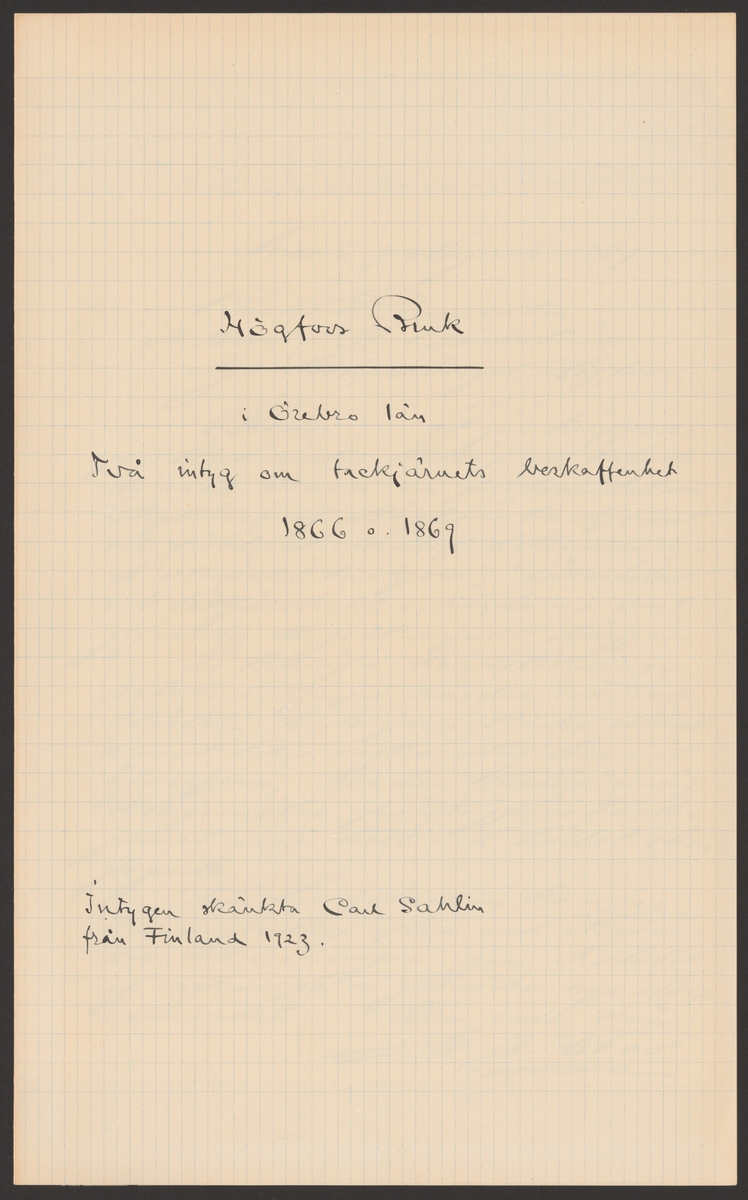 Högfors Bruk
i Örebro län
Två intyg om tackjärnets beskaffenhet
1866 o. 1869
Intygen skänkta Carl Sahlin
från Finland 1923.